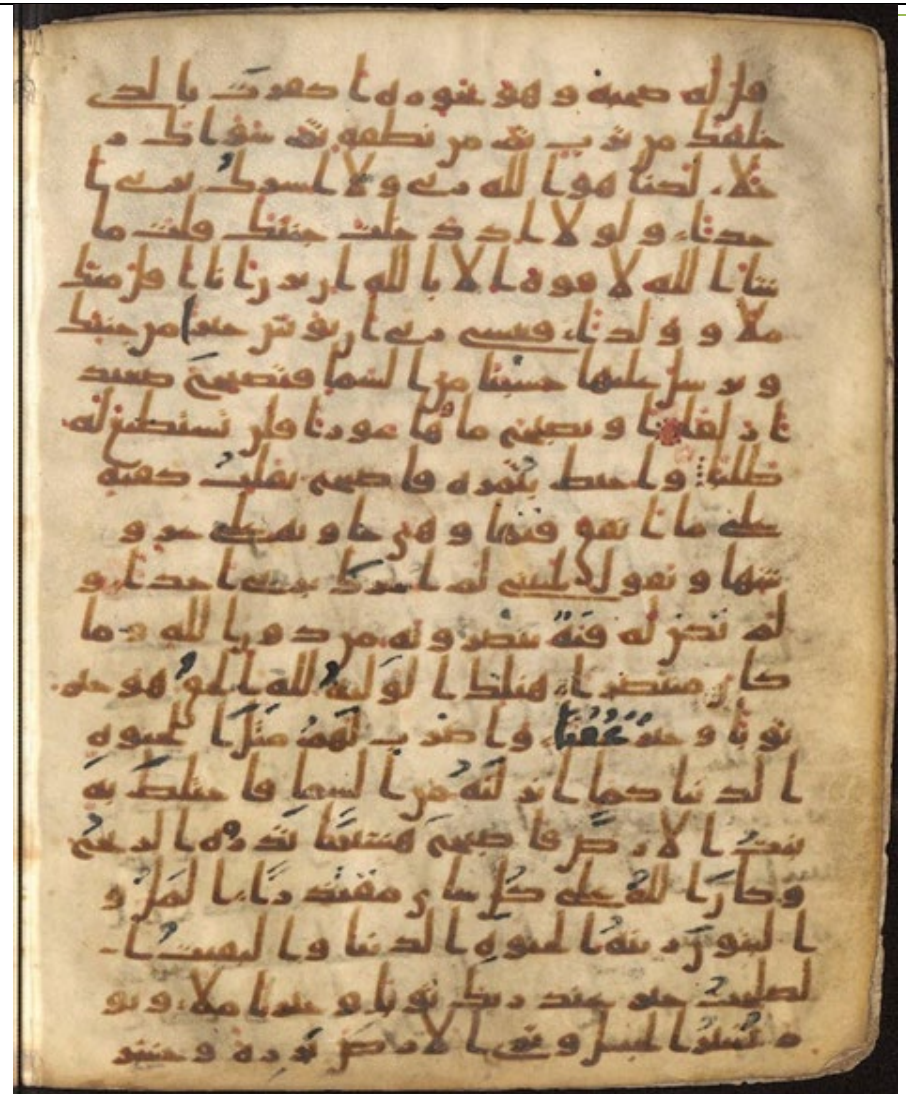 قل له صحبه وهو يحوره اكفرت بالذي
خلقك من ترب ثم من نطفه ثم سواك ر
جلا لكنا هو الله ربي ولا اشرك بربي ا
حدا ولولا اذ دخلت جنتك قلت ما
شا الله لا قوه الا بالله ان ترن انا اقل منك
ملا وولدا فعسى ربي ان يوتين خيرا من جنتك
ويرسل عليها حسبنا من السما فتصبح صعيد
ا زلقا او يصبح ماوها غورا فلن تستطيع له
طلبا واحيط بثمره فاصبح يقلب كفيه
على ما انفق فيها وهي خاويه على عرو
شها ويقول يليتني لم اشرك بربي احدا و
لم تكن له فئه ينصرونه من دون الله وما
كان منتصرا هنلك الوليه لله الحق هو خير
ثوبا وخير عقبا واضرب لهم مثل الحيوه
الدنيا كما انزلنه من السما فاختلط به
نبت الارض فاصبح هشيما تذروه الريح
وكان الله على كل شاي مقتدرا المل و
البنون زينه الحيوه الدنيا والبقيت ا
لصلحت خير عند ربك ثوبا وخير املا ويو
م نسير الجبل وترى الارض برزه وحشر